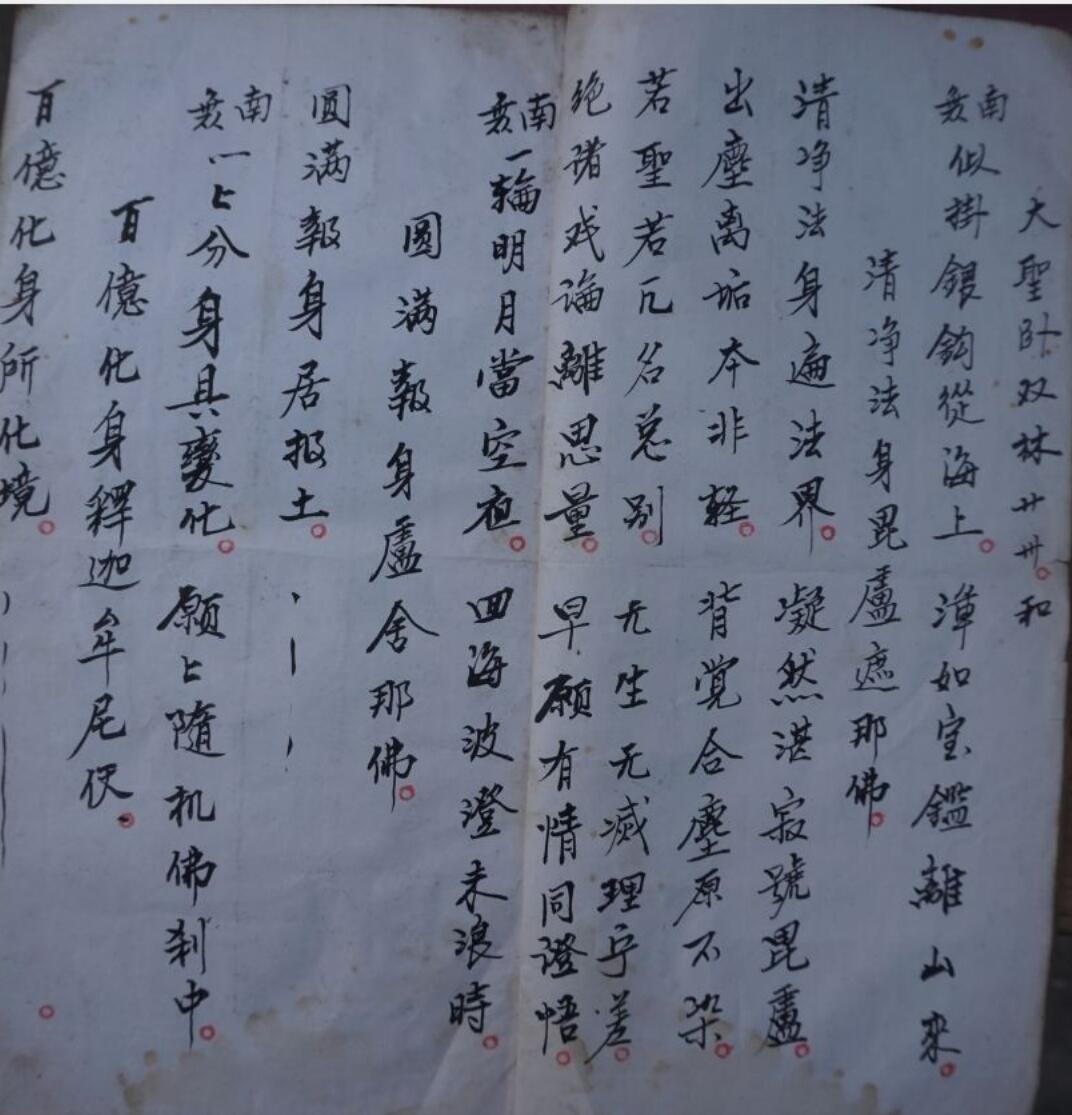 大聖卧双林廾卅。和
南無似掛銀鈎從海上。渾如宝鑑離山來。
清净法身毘盧遮那佛。
清净法身遍法界。凝然湛寂號毘盧。
出塵离垢本非軽。背覚合塵原不染。
若聖若凡名总别。无生无滅理乎差。
绝诸戏論離思量。早願有情同證悟。
南無一輪明月當空夜。四海波澄未浪時。
圆满報身盧舍那佛。
圓满報身居报土。
南無一〻分身具變化。願〻隨机佛刹中。
百億化身釋迦牟尼佛。
百億化身所化境。